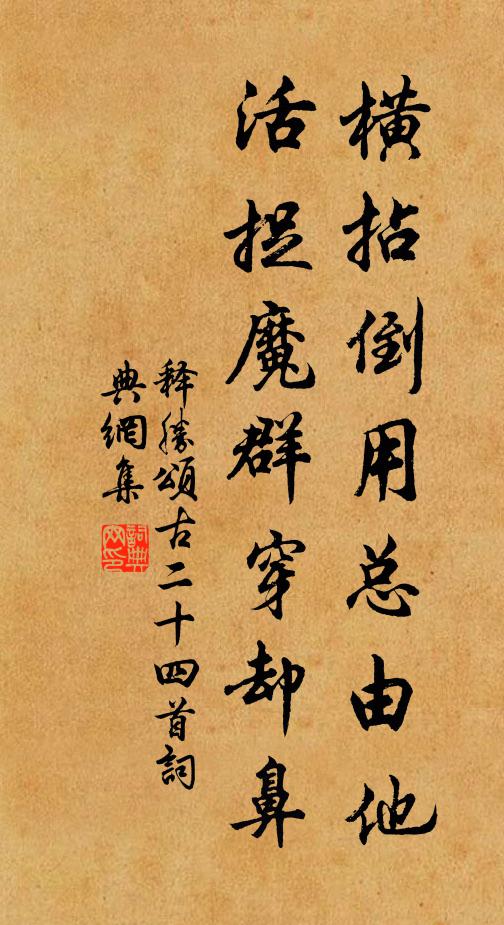 橫拈倒用总由他
活捉魔群穿却鼻
释勝頌古二十四首詞
典網集
詞典
网印